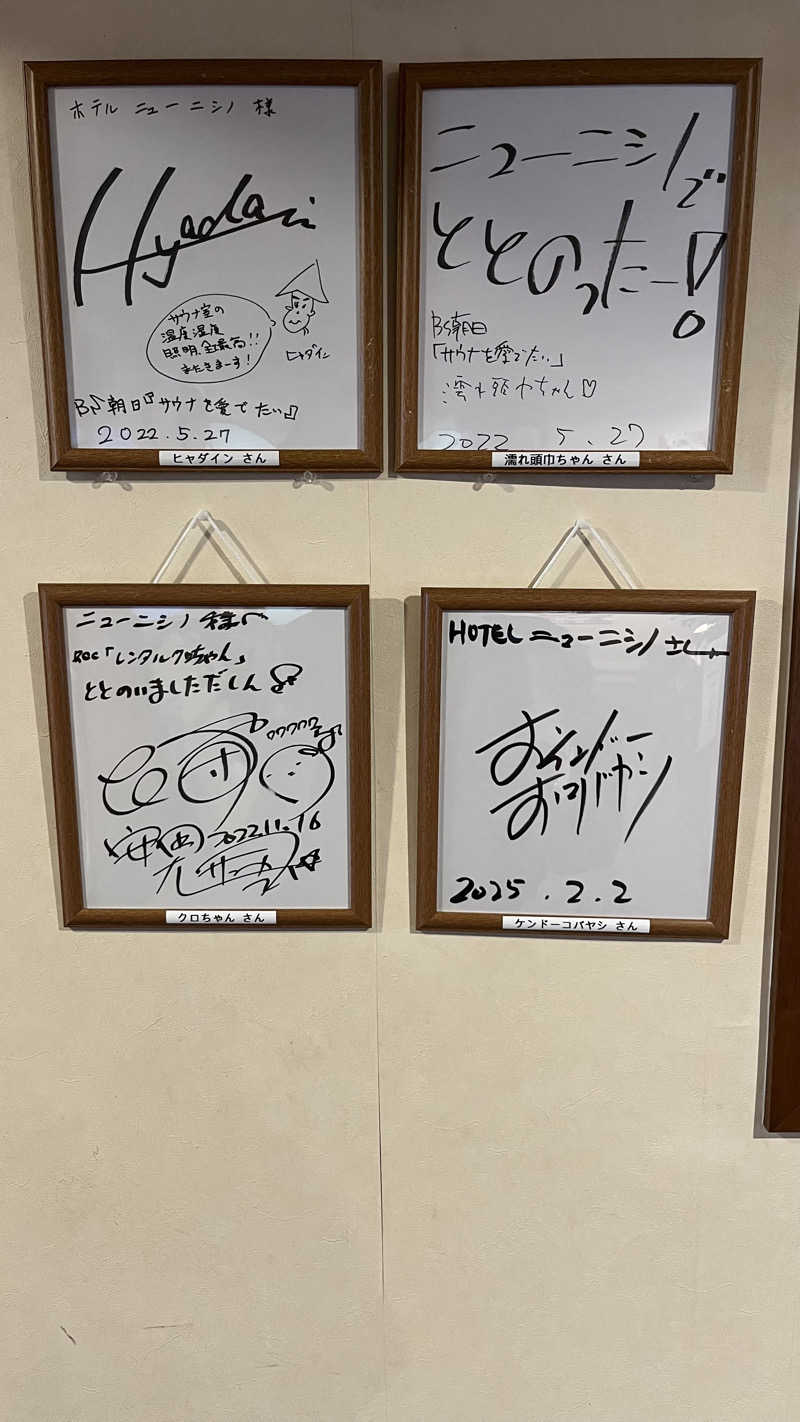 ホテル ニューニシノ 様
Hyadain
サウナ室の
温度湿度
照明、全部最高!!
またきまーす!
ヒャダイン
BS朝日『サウナを愛でたい』
2022.5.27
ヒャダイン さん
ニューニシノで
ととのったー!
BS朝日
「サウナを愛でたい」
濡れ頭巾ちゃん♡
2022 5.27
濡れ頭巾ちゃん さん
ニューニシノ 様へ
「レンタルクロちゃん」
ととのいましただしん
ワワワワ
2022.11.16
クロちゃん さん
HOTEL ニューニシノ さん
2025.2.2
ケンドーコバヤシ さん